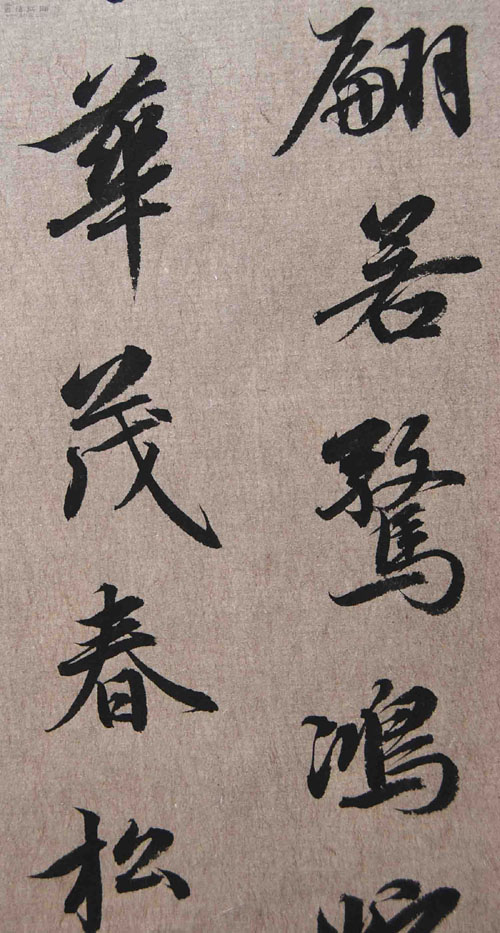 翩若驚鴻
華茂春松